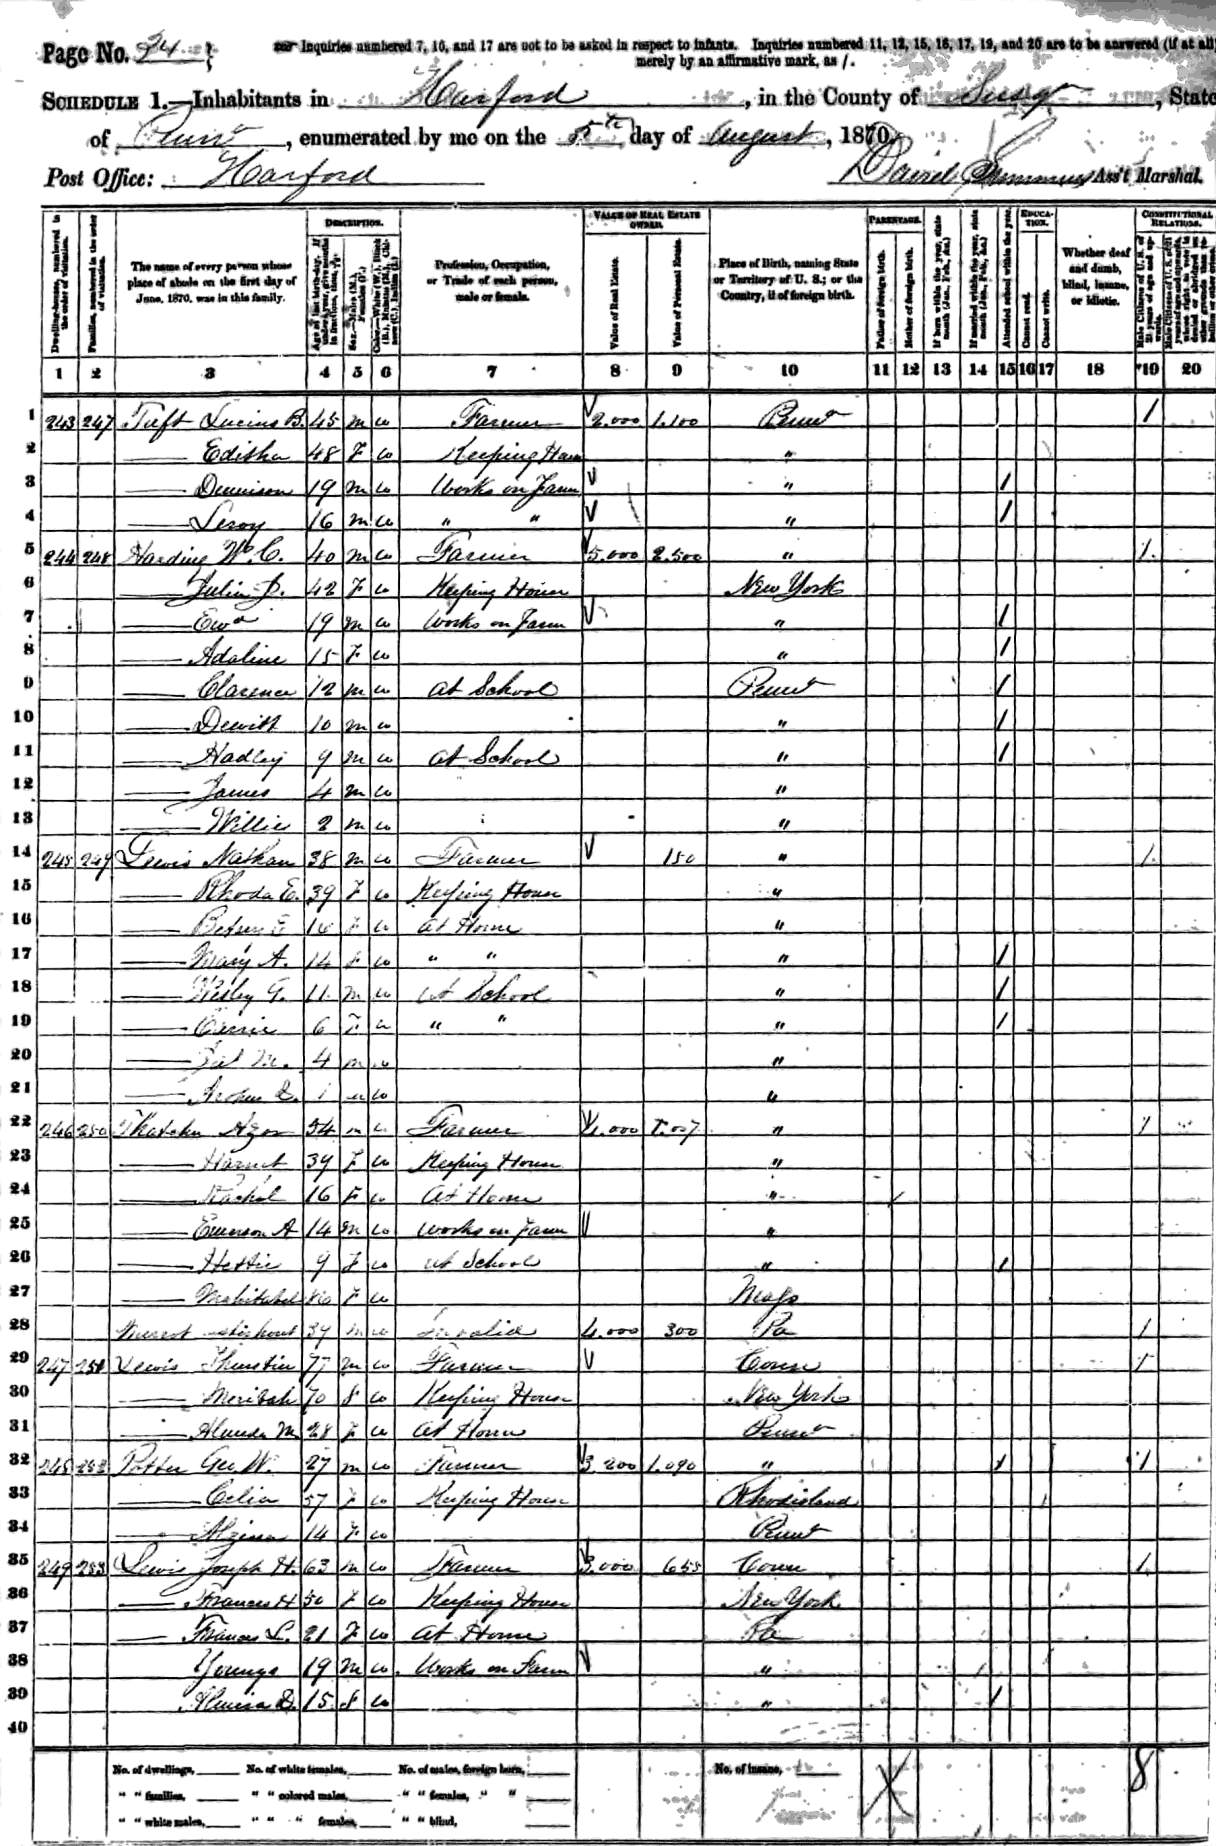 Page No. 24
Inquiries numbered 7, 16, and 17 are not to be asked in respect to infants. Inquiries numbered 11, 12, 15, 16, 17, 19, and 20 are to be answered (if at all)
merely by an affirmative mark, as /.
SCHEDULE 1.—Inhabitants in Harford, in the County of Susq, State
of Penna, enumerated by me on the 5th day of August, 1870.
Post Office: Harford David Ass't Marshal.
Dwelling-houses, numbered in the order of visitation.
Families, numbered in the order of visitation.
The name of every person whose place of abode on the first day of June, 1870, was in this family.
DESCRIPTION.
Profession, Occupation, or Trade of each person, male or female.
VALUE OF REAL ESTATE OWNED.
Value of Real Estate.
Value of Personal Estate.
Place of Birth, naming State or Territory of U. S.; or the Country, if of foreign birth.
PARENTAGE.
Father of foreign birth.
Mother of foreign birth.
If born within the year, state month (Jan., Feb., &c.)
If married within the year, state month (Jan., Feb., &c.)
Attended school within the year.
EDUCATION.
Cannot read.
Cannot write.
Whether deaf and dumb, blind, insane, or idiotic.
CONSTITUTIONAL RELATIONS.
1 2 3 4 5 6 7 8 9 10 11 12 13 14 15 16 17 18 19 20
1 243 247 Taft Lucius B. 45 m w Farmer 2.000 1.100 Penna /
2 —— Editha 48 F w Keeping House "
3 —— Dennison 19 m w Works on Farm " /
4 —— Leroy 16 m w " " " /
5 244 248 Harding W. C. 40 m w Farmer 5.000 2.500 " /
6 —— Julia P. 42 F w Keeping House New York
7 —— 19 m w Works on Farm " /
8 —— Adaline 15 F w " /
9 —— Clarence 12 m w at School Penna /
10 —— Dewitt 10 m w " /
11 —— Hadley 9 m w at School " /
12 —— James 4 m w "
13 —— Willie 2 m w "
14 245 249 Lewis Nathan 38 m w Farmer 150 " /
15 —— Rhoda E. 39 F w Keeping House "
16 —— Betsey E 16 F w at Home "
17 —— Mary A. 14 F w " " " /
18 —— Wesley G. 11 m w at School " /
19 —— Carrie 6 F w " " " /
20 —— M. 4 m w "
21 —— 1 m w "
22 246 250 Thatcher Azor 54 m w Farmer " /
23 —— Harriet 39 F w Keeping House "
24 —— Rachel 16 F w at Home " /
25 —— Emerson A 14 m w works on Farm "
26 —— Hettie 9 F w at School " /
27 —— Mehitabel 80 F w Mass
28 39 m w Invalid 4.000 300 Pa /
29 247 251 Lewis Thurstin 77 m w Farmer Conn /
30 —— Meribah 70 F w Keeping House New York
31 —— Almeda M. 28 F w at Home Penna
32 248 252 Potter Geo W. 27 m w Farmer 3.200 1.090 " / /
33 —— Celia 57 F w Keeping House Rhodisland
34 —— 14 F w Penna
35 249 253 Lewis Joseph H. 63 m w Farmer 3.000 655 Conn /
36 —— Frances H 50 F w Keeping House New York
37 —— Frances L. 21 F w at Home Pa
38 Youngs 19 m w Works on Farm "
39 15 F w " /
40
No. of dwellings, No. of white females, No. of males, foreign born, No. of insane,
" " families, " " colored males, " " females, " "
" " white males, " " " females, " " blind,
8